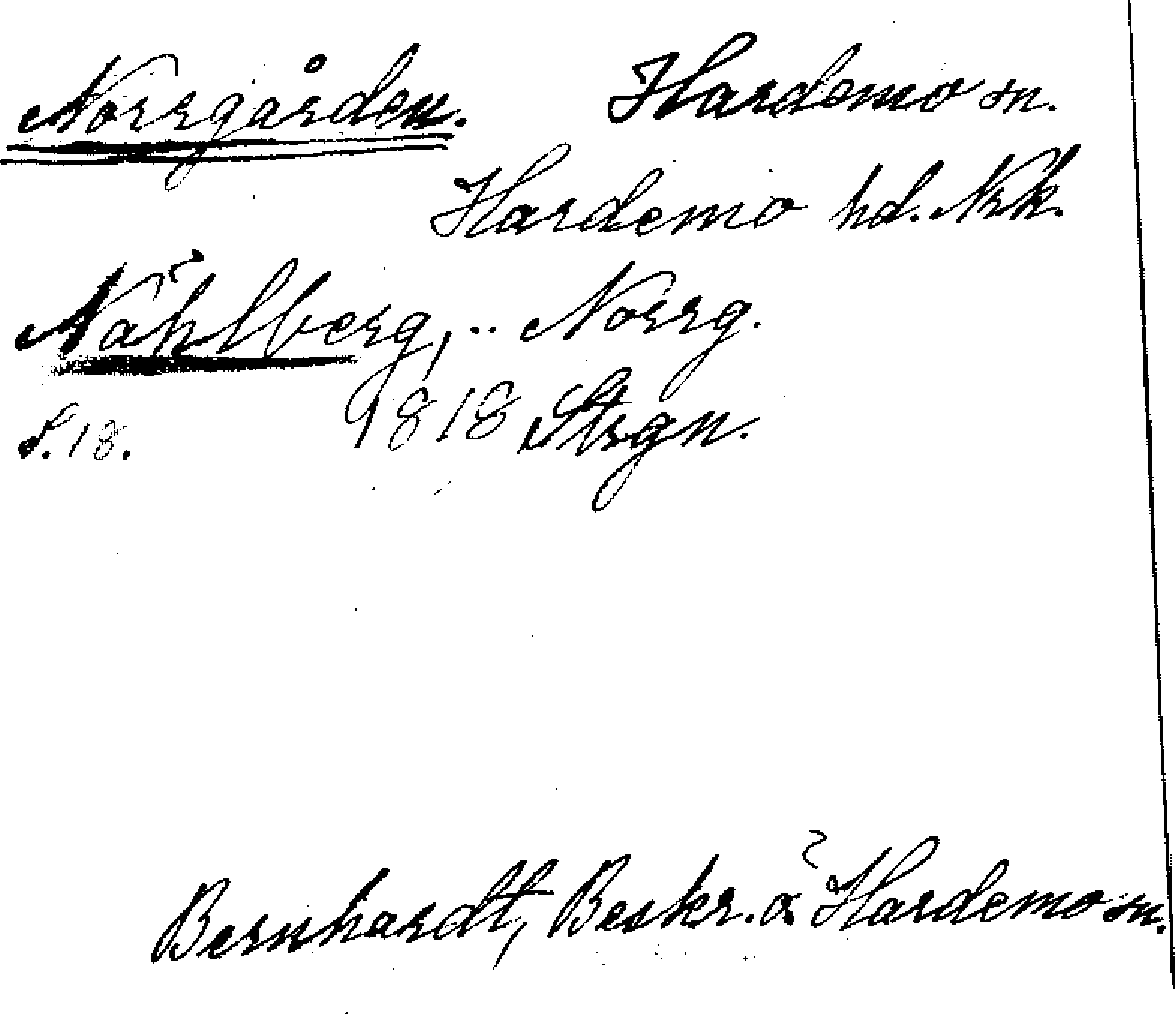 Norrgården. Hardemo sn.
Hardemo hd. Nrk.
Nåhlberg, .. Norrg.
S. 18. 1818 Strgn.
Bernhardt, Beskr. å Hardemo sn.